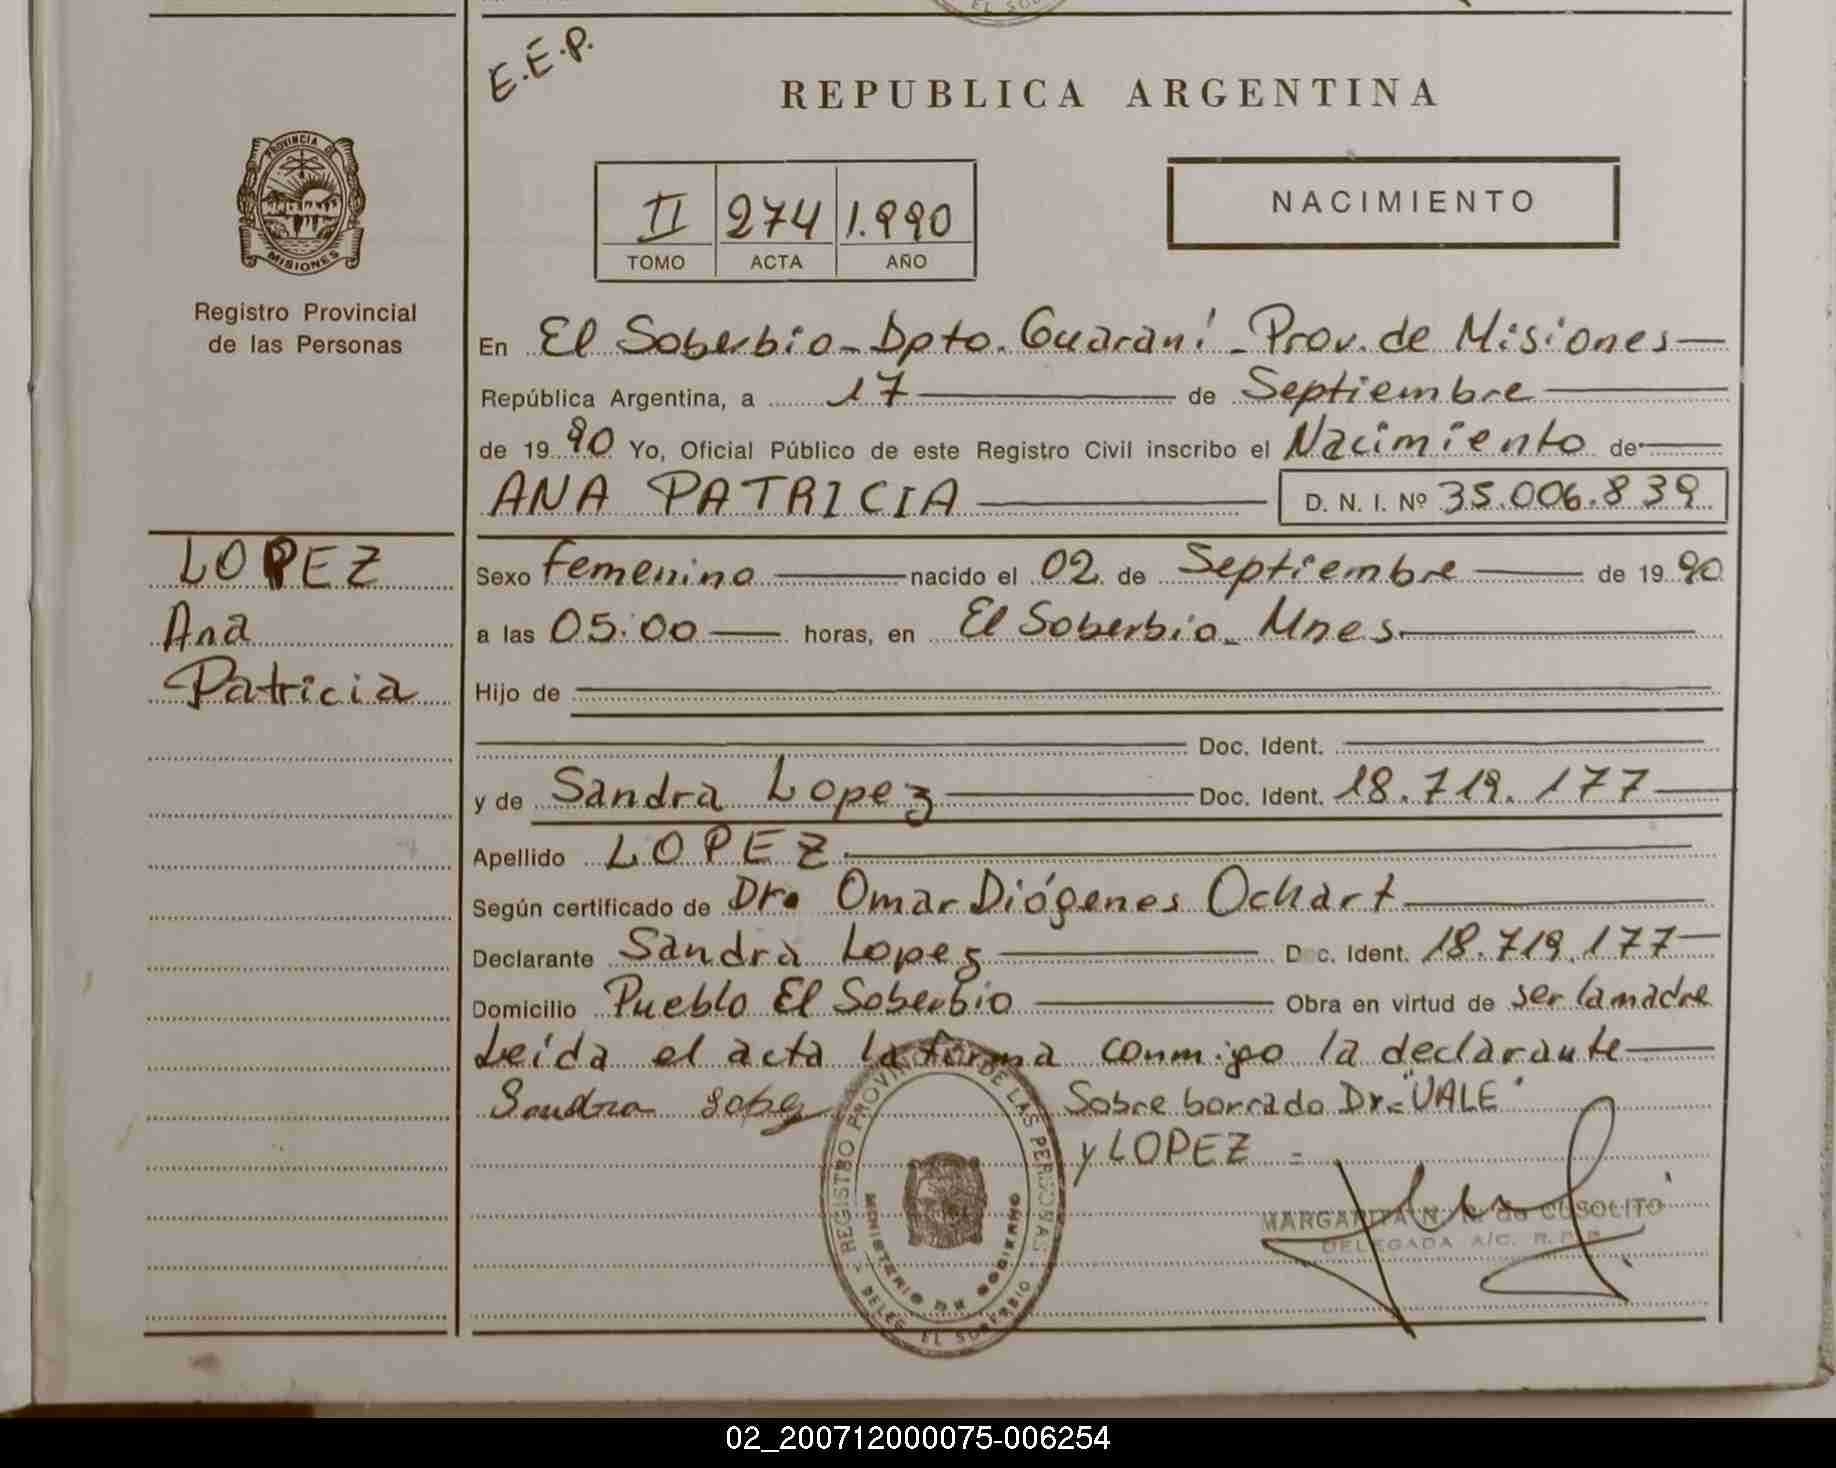 EL SOB
E.E.P.
REPUBLICA ARGENTINA
PROVINCIA DE
MISIONES
II 274 1.990
TOMO ACTA AÑO
NACIMIENTO
Registro Provincial
de las Personas
En El Soberbio - Dpto. Guaraní - Prov. de Misiones
República Argentina, a 17 de Septiembre
de 19 90 Yo, Oficial Público de este Registro Civil inscribo el Nacimiento de
ANA PATRICIA D. N. I. Nº 35.006.839
LOPEZ
Ana
Patricia
Sexo femenino nacido el 02 de Septiembre de 19 90
a las 05:00 horas, en El Soberbio - Mnes.
Hijo de
Doc. Ident.
y de Sandra Lopez Doc. Ident. 18.719.177
Apellido LOPEZ
Según certificado de Dr. Omar Diógenes Ochart
Declarante Sandra Lopez D c. Ident. 18.719.177
Domicilio Pueblo El Soberbio Obra en virtud de ser la madre
Leída el acta la firma conmigo la declarante
Sandra Lopez Sobre borrado Dr. "VALE"
y LOPEZ -
REGISTRO PROVINCIAL DE LAS PERSONAS
MINISTERIO DE GOBIERNO
DELEG. EL SOBERBIO
MARGARITA N. de CUSOLITO
DELEGADA A/C. R.P.P.
02_200712000075-006254